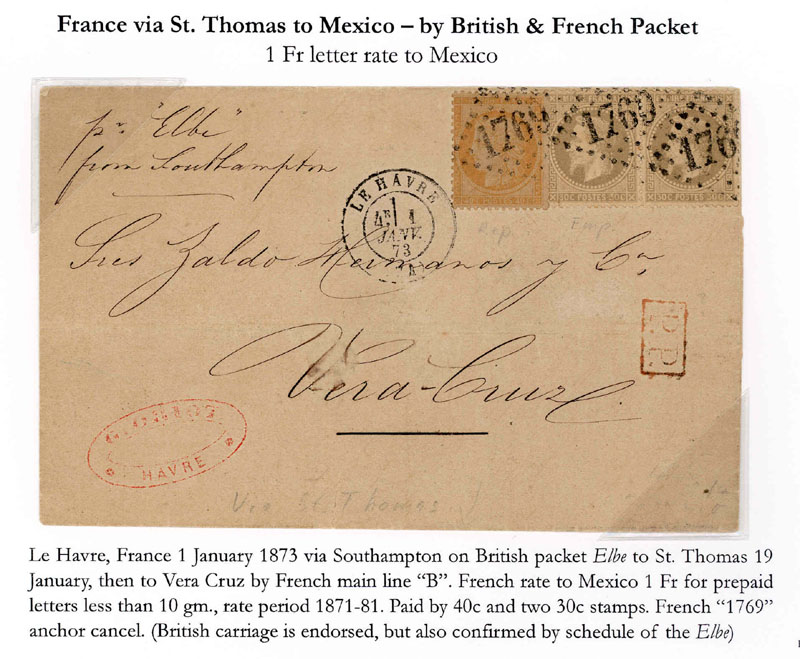 France via St. Thomas to Mexico – by British & French Packet
1 Fr letter rate to Mexico
pr. "Elbe"
from Southampton
1769
1769
1769
LE HAVRE
1
4E 1
JANV.
73
Rep. Emp.
Sres Zaldo Hermanos y Ca,
P.P.
Vera-Cruz
HAVRE
Via St. Thomas
Le Havre, France 1 January 1873 via Southampton on British packet Elbe to St. Thomas 19
January, then to Vera Cruz by French main line “B”. French rate to Mexico 1 Fr for prepaid
letters less than 10 gm., rate period 1871-81. Paid by 40c and two 30c stamps. French “1769”
anchor cancel. (British carriage is endorsed, but also confirmed by schedule of the Elbe)